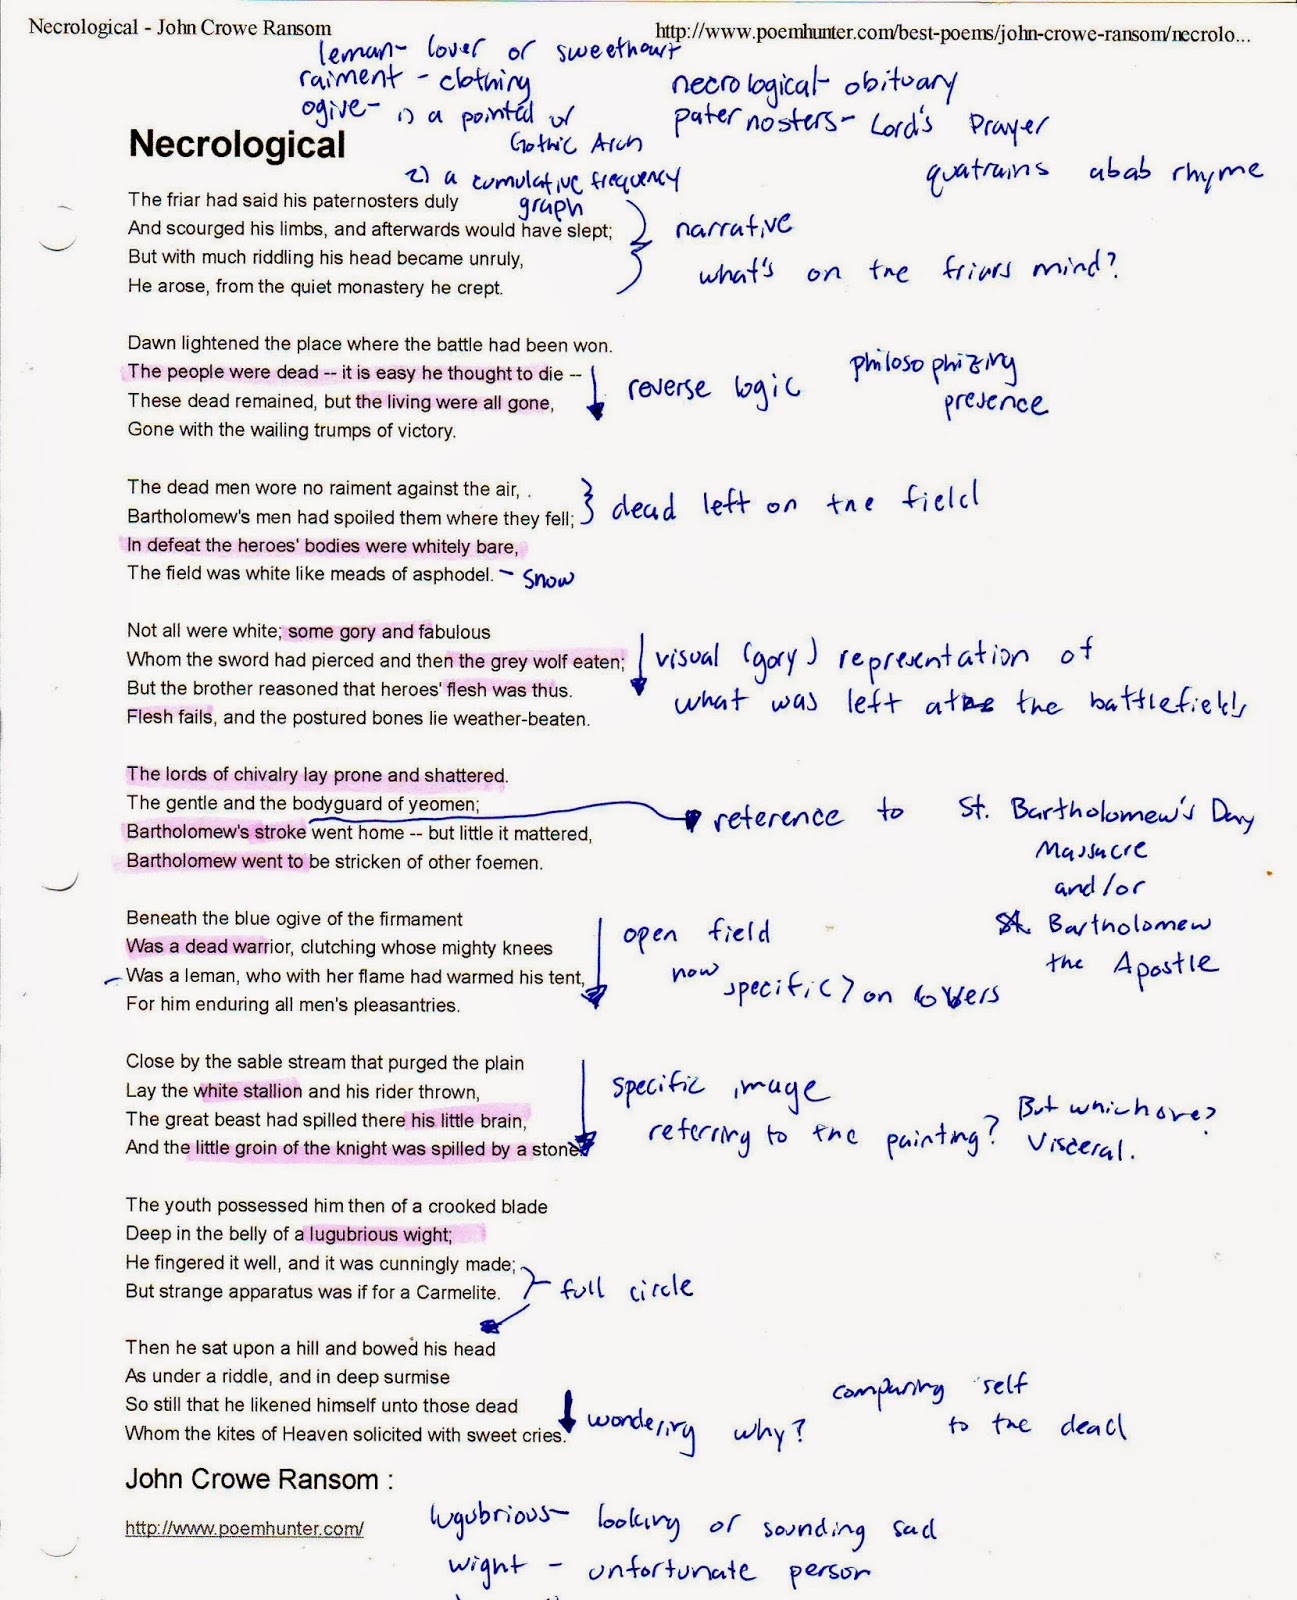 Necrological - John Crowe Ransom
http://www.poemhunter.com/best-poems/john-crowe-ransom/necrolo...
leman- lover or sweetheart
raiment - clothing
ogive- 1) a pointed or
Gothic Arch
2) a cumulative frequency
graph
necrological- obituary
paternosters- Lord's Prayer
quatrains abab rhyme
Necrological
The friar had said his paternosters duly
And scourged his limbs, and afterwards would have slept;
But with much riddling his head became unruly,
He arose, from the quiet monastery he crept.
narrative
what's on the friars mind?
Dawn lightened the place where the battle had been won.
The people were dead -- it is easy he thought to die --
These dead remained, but the living were all gone,
Gone with the wailing trumps of victory.
reverse logic
philosophizing
presence
The dead men wore no raiment against the air, .
Bartholomew's men had spoiled them where they fell;
In defeat the heroes' bodies were whitely bare,
The field was white like meads of asphodel. - snow
dead left on the field
Not all were white; some gory and fabulous
Whom the sword had pierced and then the grey wolf eaten;
But the brother reasoned that heroes' flesh was thus.
Flesh fails, and the postured bones lie weather-beaten.
visual (gory) representation of
what was left at the battlefields
The lords of chivalry lay prone and shattered.
The gentle and the bodyguard of yeomen;
Bartholomew's stroke went home -- but little it mattered,
Bartholomew went to be stricken of other foemen.
reference to St. Bartholomew's Day
Massacre
and/or
St. Bartholomew
the Apostle
Beneath the blue ogive of the firmament
Was a dead warrior, clutching whose mighty knees
Was a leman, who with her flame had warmed his tent,
For him enduring all men's pleasantries.
open field
now
specific> on lovers
Close by the sable stream that purged the plain
Lay the white stallion and his rider thrown,
The great beast had spilled there his little brain,
And the little groin of the knight was spilled by a stone.
specific image
referring to the painting?
But which one?
Visceral.
The youth possessed him then of a crooked blade
Deep in the belly of a lugubrious wight;
He fingered it well, and it was cunningly made;
But strange apparatus was if for a Carmelite.
full circle
Then he sat upon a hill and bowed his head
As under a riddle, and in deep surmise
So still that he likened himself unto those dead
Whom the kites of Heaven solicited with sweet cries.
wondering why?
comparing self
to the dead
John Crowe Ransom :
http://www.poemhunter.com/
lugubrious- looking or sounding sad
wight - unfortunate person